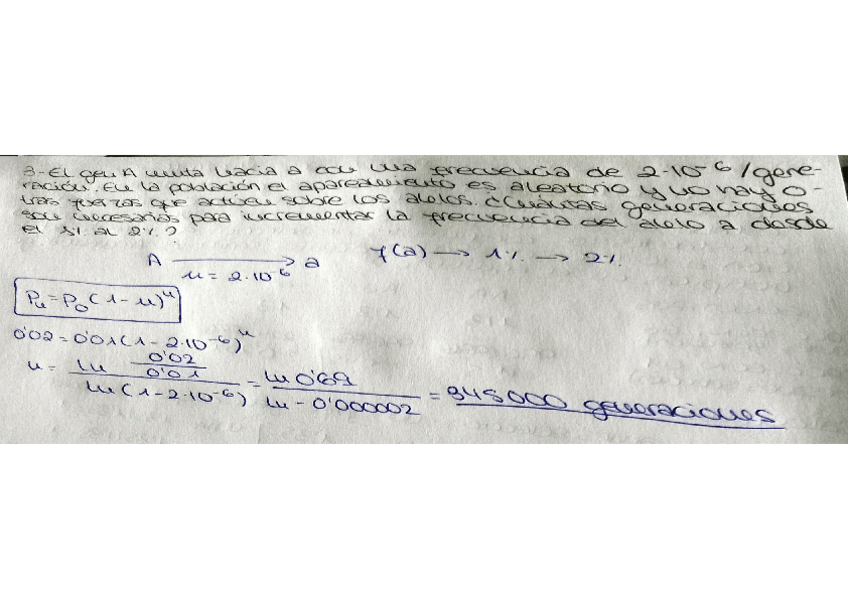 3-El gen A muta hacia a con una frecuencia de 2·10⁻⁶/gene-
ración. En la población el apareamiento es aleatorio y no hay o-
tras fuerzas que actúen sobre los alelos. ¿Cuántas generaciones
son necesarias para incrementar la frecuencia del alelo a desde
el 1% al 2%?
A ⟶ a f(a) → 1% → 2%.
u = 2·10⁻⁶
Pn = P0 (1-u)ⁿ
0'02 = 0'01 (1-2·10⁻⁶)ⁿ
n = ln 0'02/0'01 / ln (1-2·10⁻⁶) = ln 0'69 / ln -0'000002 = 345000 generaciones